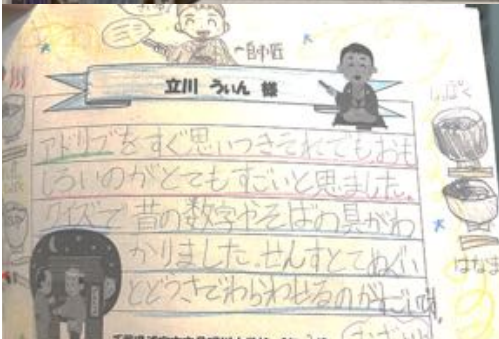 師匠
立川 うぃん 様
しっぽく
アドリブをすぐ思いつきそれでもおも
しろいのがとてもすごいと思いました。
クイズで昔の数字やそばの具がわ
かりました。せんすとてぬぐい
とどうさでわらわせるのがすごいです。
はなま